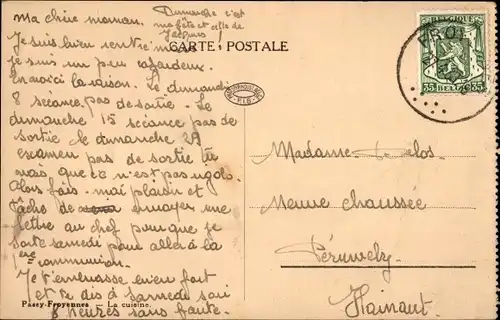 Ma chère maman. Dimanche c'est
ma fête et celle de
Jacques !
CARTE POSTALE
Je suis bien rentré mais
je suis un peu cafardeux.
En voici la raison. Le dimanche
8 scéance pas de sortie. Le
dimanche 15 scéance pas de
sortie. le dimanche
examen pas de sortie tu
vois, que ce n'est pas rigolo.
Alors fais-moi plaisir et
tâche de envoyer une
lettre au chef pour que je
sorte samedi pour aller à la
1ère communion.
Je t'embrasse bien fort
et te dis à samedi soir
8 heures sans faute.
Passy-Froyennes — La cuisine.
BELGIQUE
35 BELGIE 35
Madame Delos
Neuve chaussée
Péruwelz
Hainaut